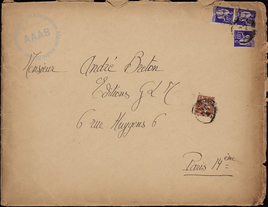 AAAB
Monsieur André Breton
Editions G L M
6 rue Huygens 6
Paris 14ème